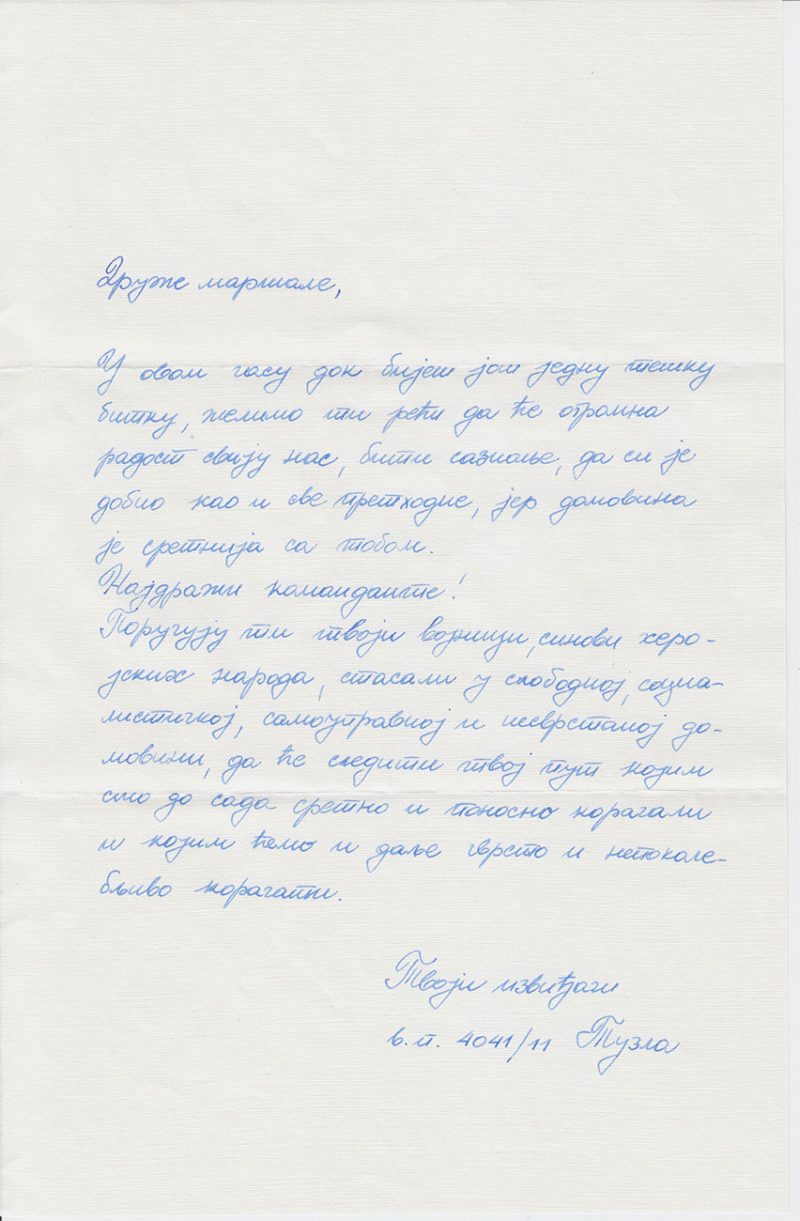 Друже маршале,
У овом часу док бијеш још једну тешку
битку, желимо ти рећи да ће огромна
радост свију нас, бити сазнање, да си је
добио као и све претходне, јер домовина
је сретнија са тобом.
Најдражи команданте!
Поручују ти твоји војници, синови херо-
јских народа, стасали у слободној, соција-
листичкој, самоуправној и несврстаној до-
мовини, да ће следити твој пут којим
смо до сада сретно и поносно корачали
и којим ћемо и даље чврсто и непоколе-
бљиво корачати.
Твоји извиђачи
в.п. 4041/11 Тузла